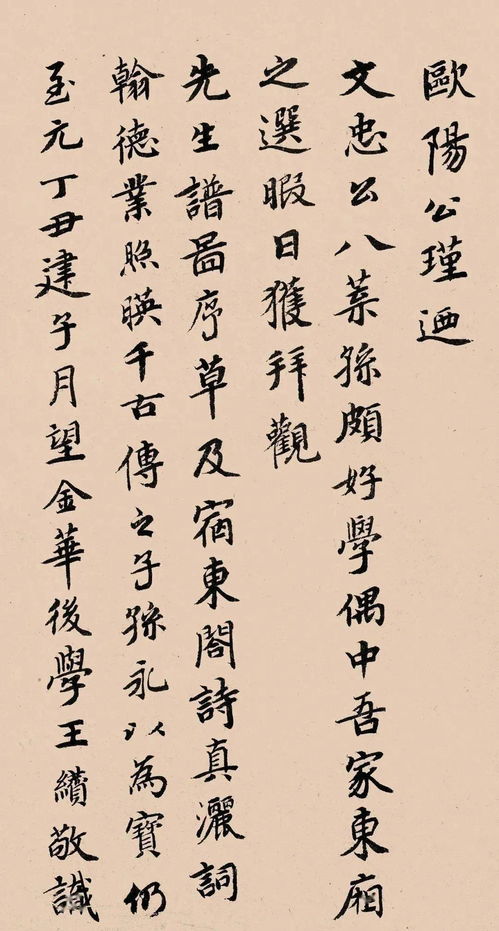 歐陽公瑾迺
文忠公八葉孫頗好學偶中吾家東廂
之選暇日獲拜觀
先生譜啚序草及宿東閣詩真灑詞
翰德業照暎千古傳之子孫永以為寶仍
至元丁丑建子月望金華後學王績敬識